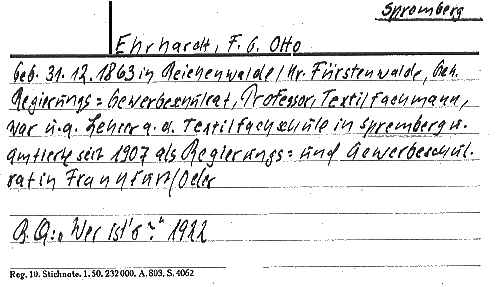 Spremberg
Ehrhardt, F. G. Otto
Geb. 31.12.1863 in Reichenwalde/Kr. Fürstenwalde, Geh.
Regierungs= Gewerbeschulrat, Professor, Textilfachmann,
war u.a. Lehrer a.d. Textilfachschule in Spremberg u.
amtierte seit 1907 als Regierungs= und Gewerbeschul-
rat in Frankfurt/Oder
B.Q.: „Wer ist's?" 1922
Reg. 10. Stichnote. 1. 50. 232000. A. 803. S. 4062